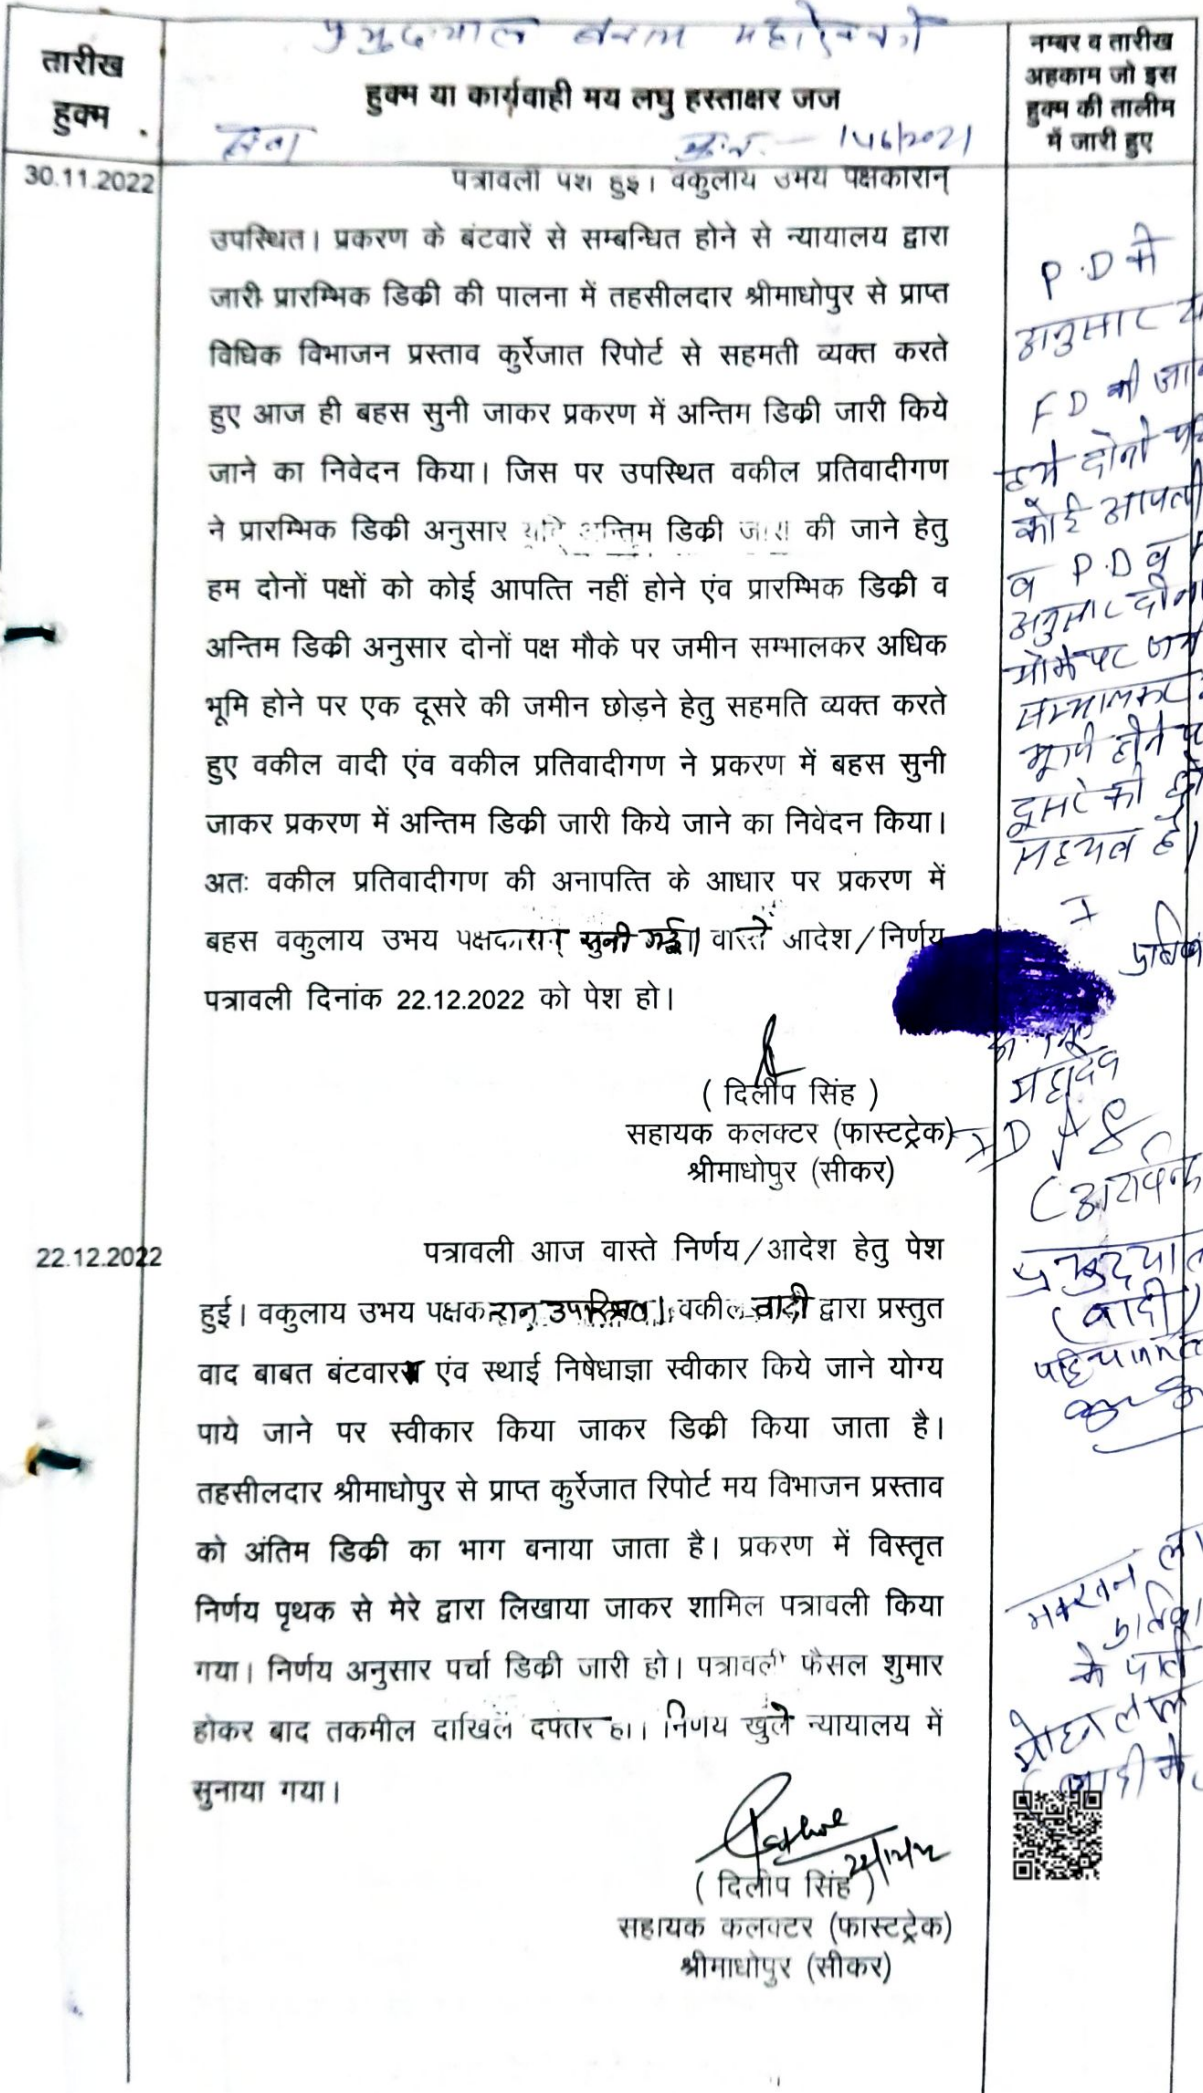 प्रभुदयाल बनाम महादेव
तारीख
हुक्म
हुक्म या कार्यवाही मय लघु हस्ताक्षर जज
नम्बर व तारीख
अहकाम जो इस
हुक्म की तालीम
में जारी हुए
146/2021
30.11.2022
पत्रावली पेश हुई। वकुलाय उभय पक्षकारान्
उपस्थित। प्रकरण के बंटवारें से सम्बन्धित होने से न्यायालय द्वारा
जारी प्रारम्भिक डिकी की पालना में तहसीलदार श्रीमाधोपुर से प्राप्त
विधिक विभाजन प्रस्ताव कुर्रेजात रिपोर्ट से सहमती व्यक्त करते
हुए आज ही बहस सुनी जाकर प्रकरण में अन्तिम डिकी जारी किये
जाने का निवेदन किया। जिस पर उपस्थित वकील प्रतिवादीगण
ने प्रारम्भिक डिकी अनुसार यदि अन्तिम डिकी जारी की जाने हेतु
हम दोनों पक्षों को कोई आपत्ति नहीं होने एंव प्रारम्भिक डिकी व
अन्तिम डिकी अनुसार दोनों पक्ष मौके पर जमीन सम्भालकर अधिक
भूमि होने पर एक दूसरे की जमीन छोड़ने हेतु सहमति व्यक्त करते
हुए वकील वादी एंव वकील प्रतिवादीगण ने प्रकरण में बहस सुनी
जाकर प्रकरण में अन्तिम डिकी जारी किये जाने का निवेदन किया।
अतः वकील प्रतिवादीगण की अनापत्ति के आधार पर प्रकरण में
बहस वकुलाय उभय पक्षकारान् सुनी गई। वास्ते आदेश/निर्णय
पत्रावली दिनांक 22.12.2022 को पेश हो।
( दिलीप सिंह )
सहायक कलक्टर (फास्टट्रेक)
श्रीमाधोपुर (सीकर)
22.12.2022
पत्रावली आज वास्ते निर्णय/आदेश हेतु पेश
हुई। वकुलाय उभय पक्षकरान् उपस्थित। वकील वादी द्वारा प्रस्तुत
वाद बाबत बंटवारा एंव स्थाई निषेधाज्ञा स्वीकार किये जाने योग्य
पाये जाने पर स्वीकार किया जाकर डिकी किया जाता है।
तहसीलदार श्रीमाधोपुर से प्राप्त कुर्रेजात रिपोर्ट मय विभाजन प्रस्ताव
को अंतिम डिकी का भाग बनाया जाता है। प्रकरण में विस्तृत
निर्णय पृथक से मेरे द्वारा लिखाया जाकर शामिल पत्रावली किया
गया। निर्णय अनुसार पर्चा डिकी जारी हो। पत्रावली फैसल शुमार
होकर बाद तकमील दाखिल दफ्तर हो। निर्णय खुले न्यायालय में
सुनाया गया।
22/12/22
( दिलीप सिंह )
सहायक कलक्टर (फास्टट्रेक)
श्रीमाधोपुर (सीकर)
P.D के
अनुसार
FD की
दोनो
कोई आपत्ती
व P.D व
अनुसार दोनो
मोके पर
सम्भालकर
होने पर
दूसरे को
सहमत है।
महादेव
प्रभुदयाल
(वादी)
मोहन लाल